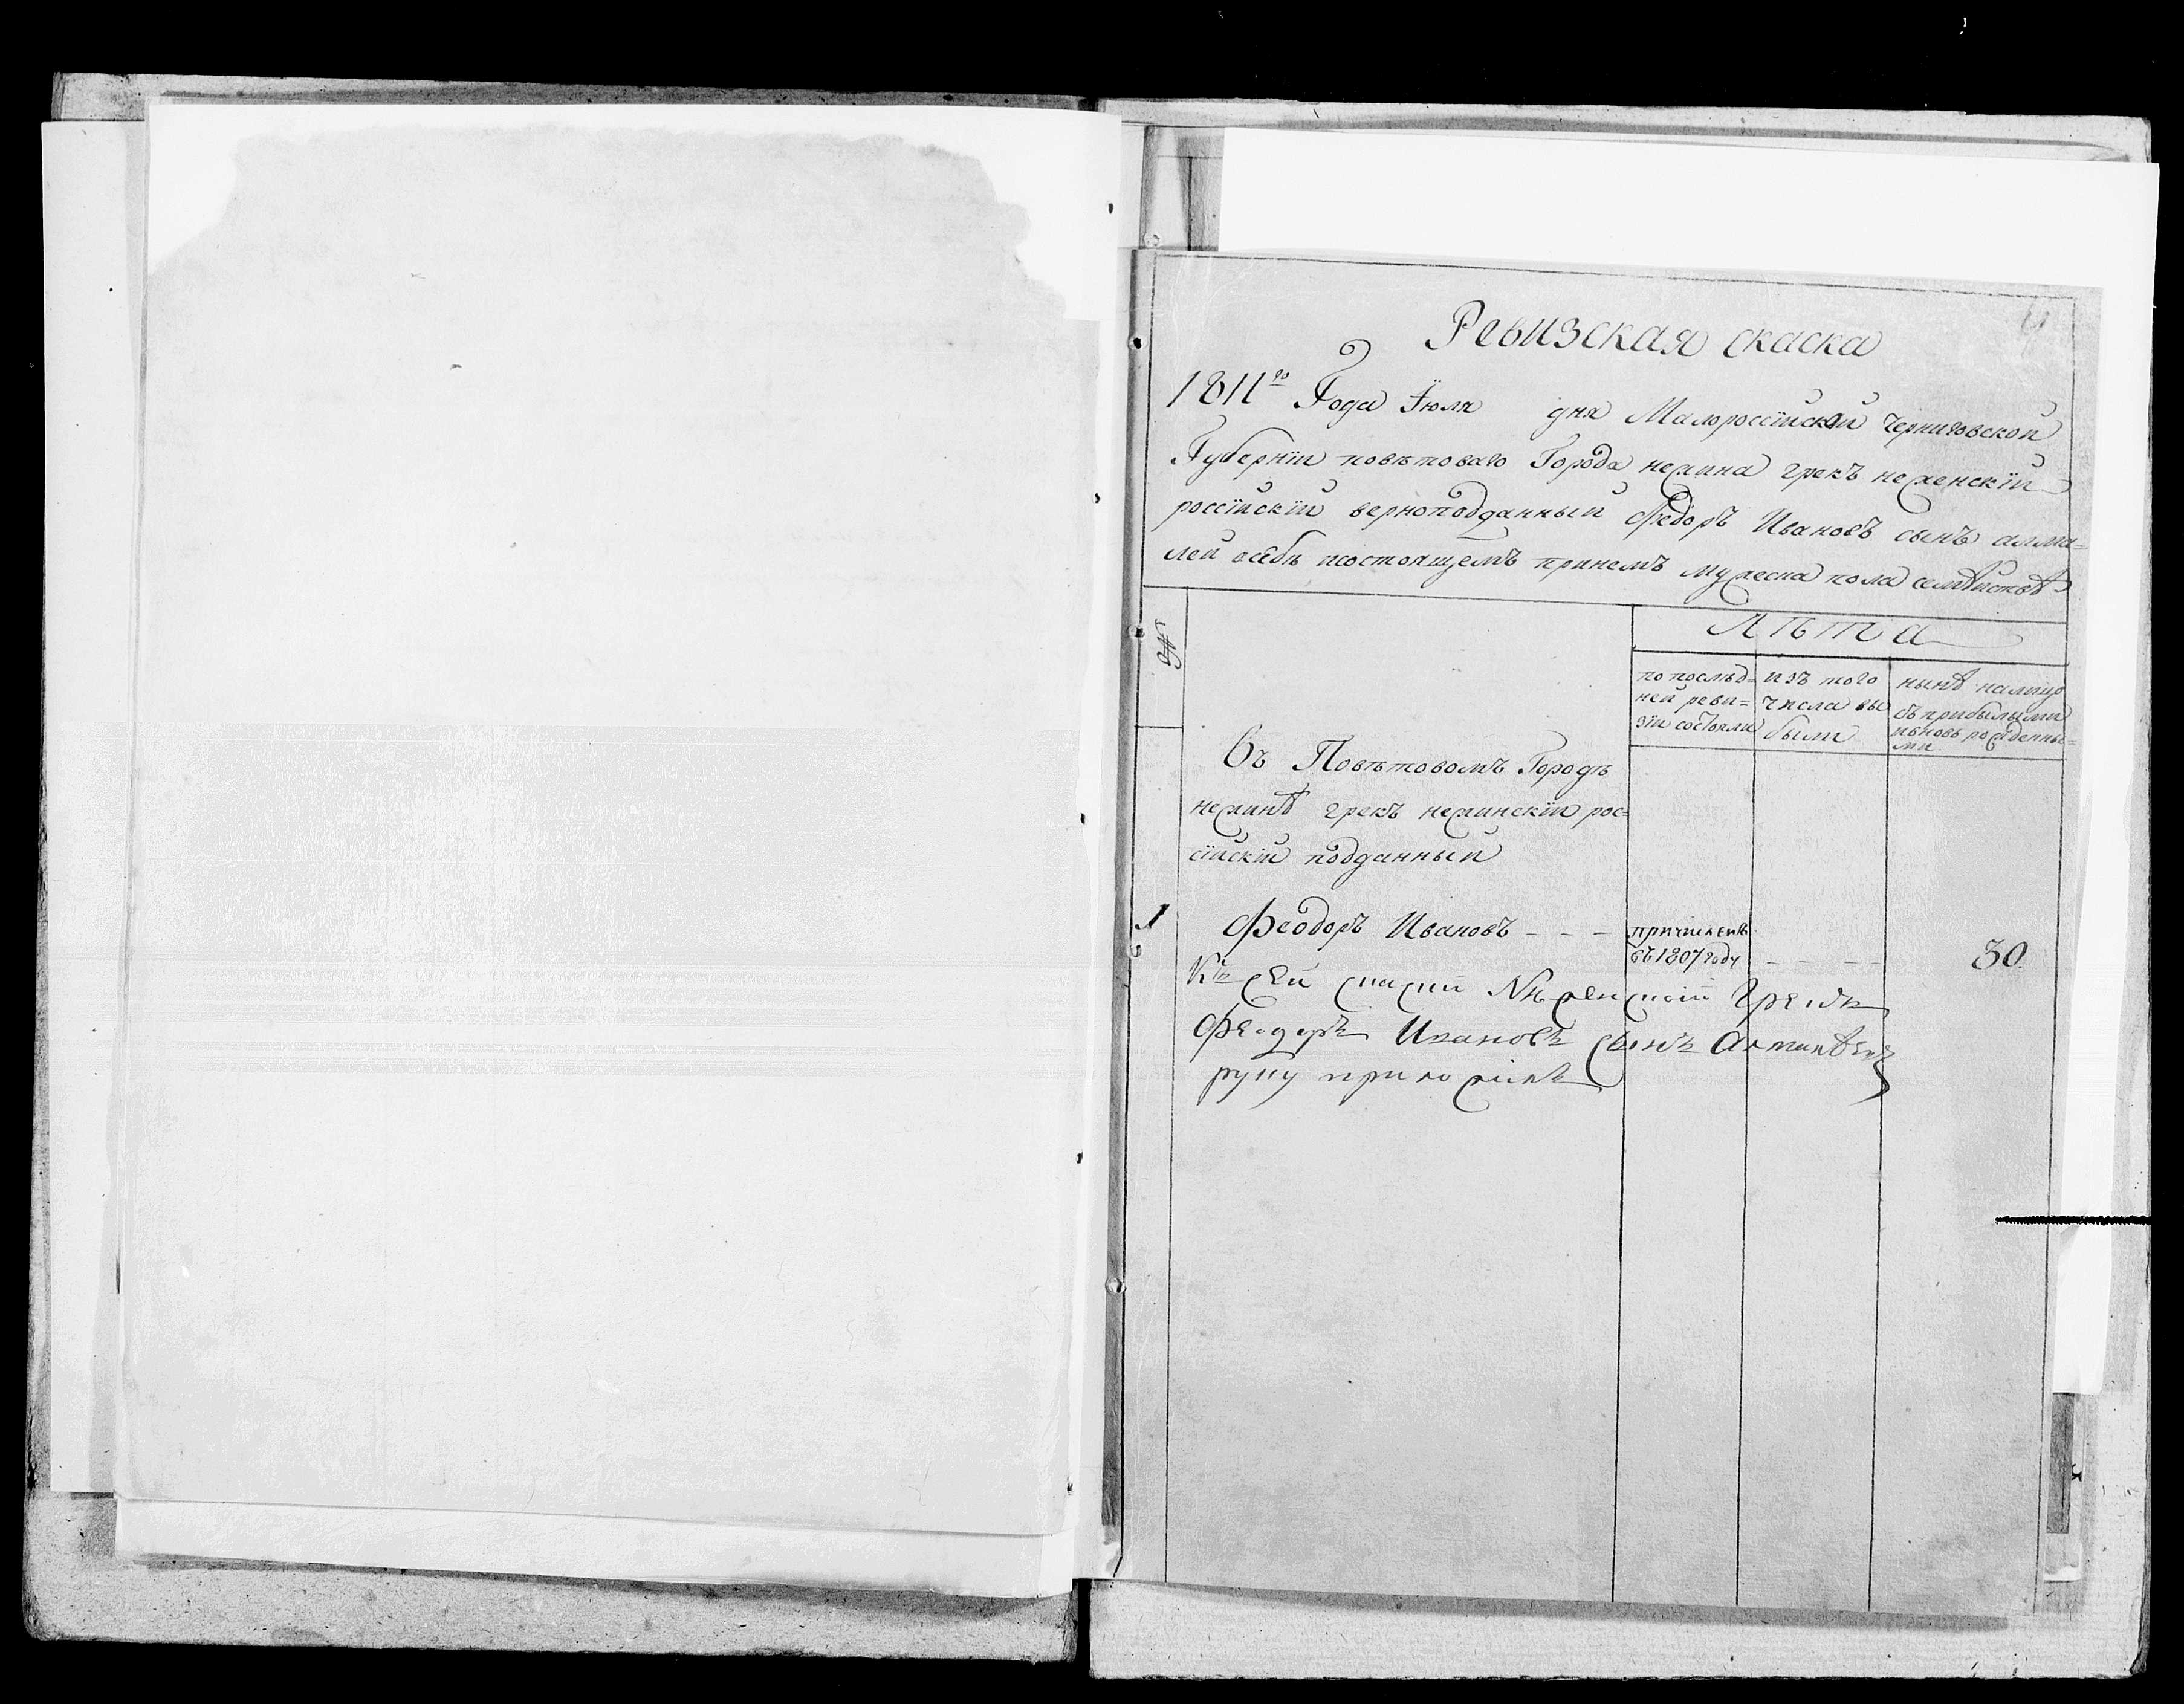 Ревизская скаска
1811го Года Іюля дня Малороссійской Черниговской
Губерніи повѣтоваго Города нежина грекъ неженскій
россійскій верноподданный Федоръ Ивановъ сынъ
лей осебѣ исостоящемъ принемъ мужеска пола семѣйствѣ
№
Лѣта
по послѣд=
ней реви=
зіи состояли
изъ того
числа вы
были
нынѣ налицо
съ прибылыми
ивновь рожденны=
ми
Въ Повѣтовомъ Городѣ
нежинѣ грекъ нежинскій рос=
сійскій подданный
1
Феодоръ Ивановъ - - -
причисленъ
въ 1807 году
- - - -
30.
Къ сей скаски Нѣженскій Грекъ
Феодоръ Ивановъ сынъ
руку приложилъ